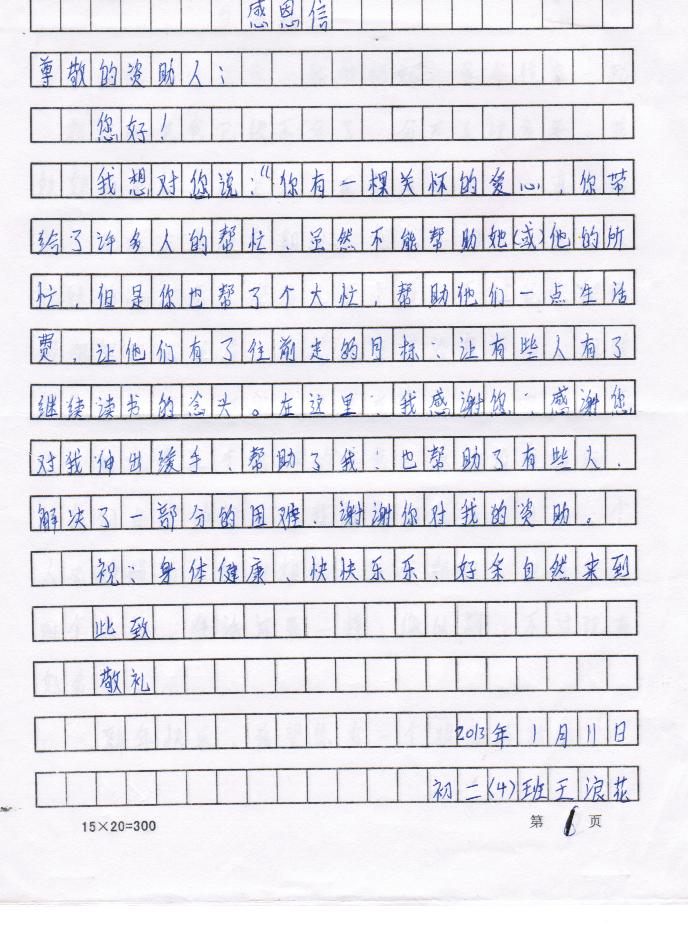 感恩信
尊敬的资助人：
您好！
我想对您说：“你有一棵关怀的爱心，你带
给了许多人的帮忙、虽然不能帮助她（或）他的所
忙，但是你也帮了个大忙，帮助他们一点生活
费，让他们有了往前走的目标、让有些人有了
继续读书的念头。在这里、我感谢您、感谢您
对我伸出缓手、帮助了我、也帮助了有些人、
解决了一部分的困难、谢谢你对我的资助。
祝：身体健康、快快乐乐、好余自然来到
此致
敬礼
2013年1月11日
初二（4）班王浪花
15×20=300
第1页